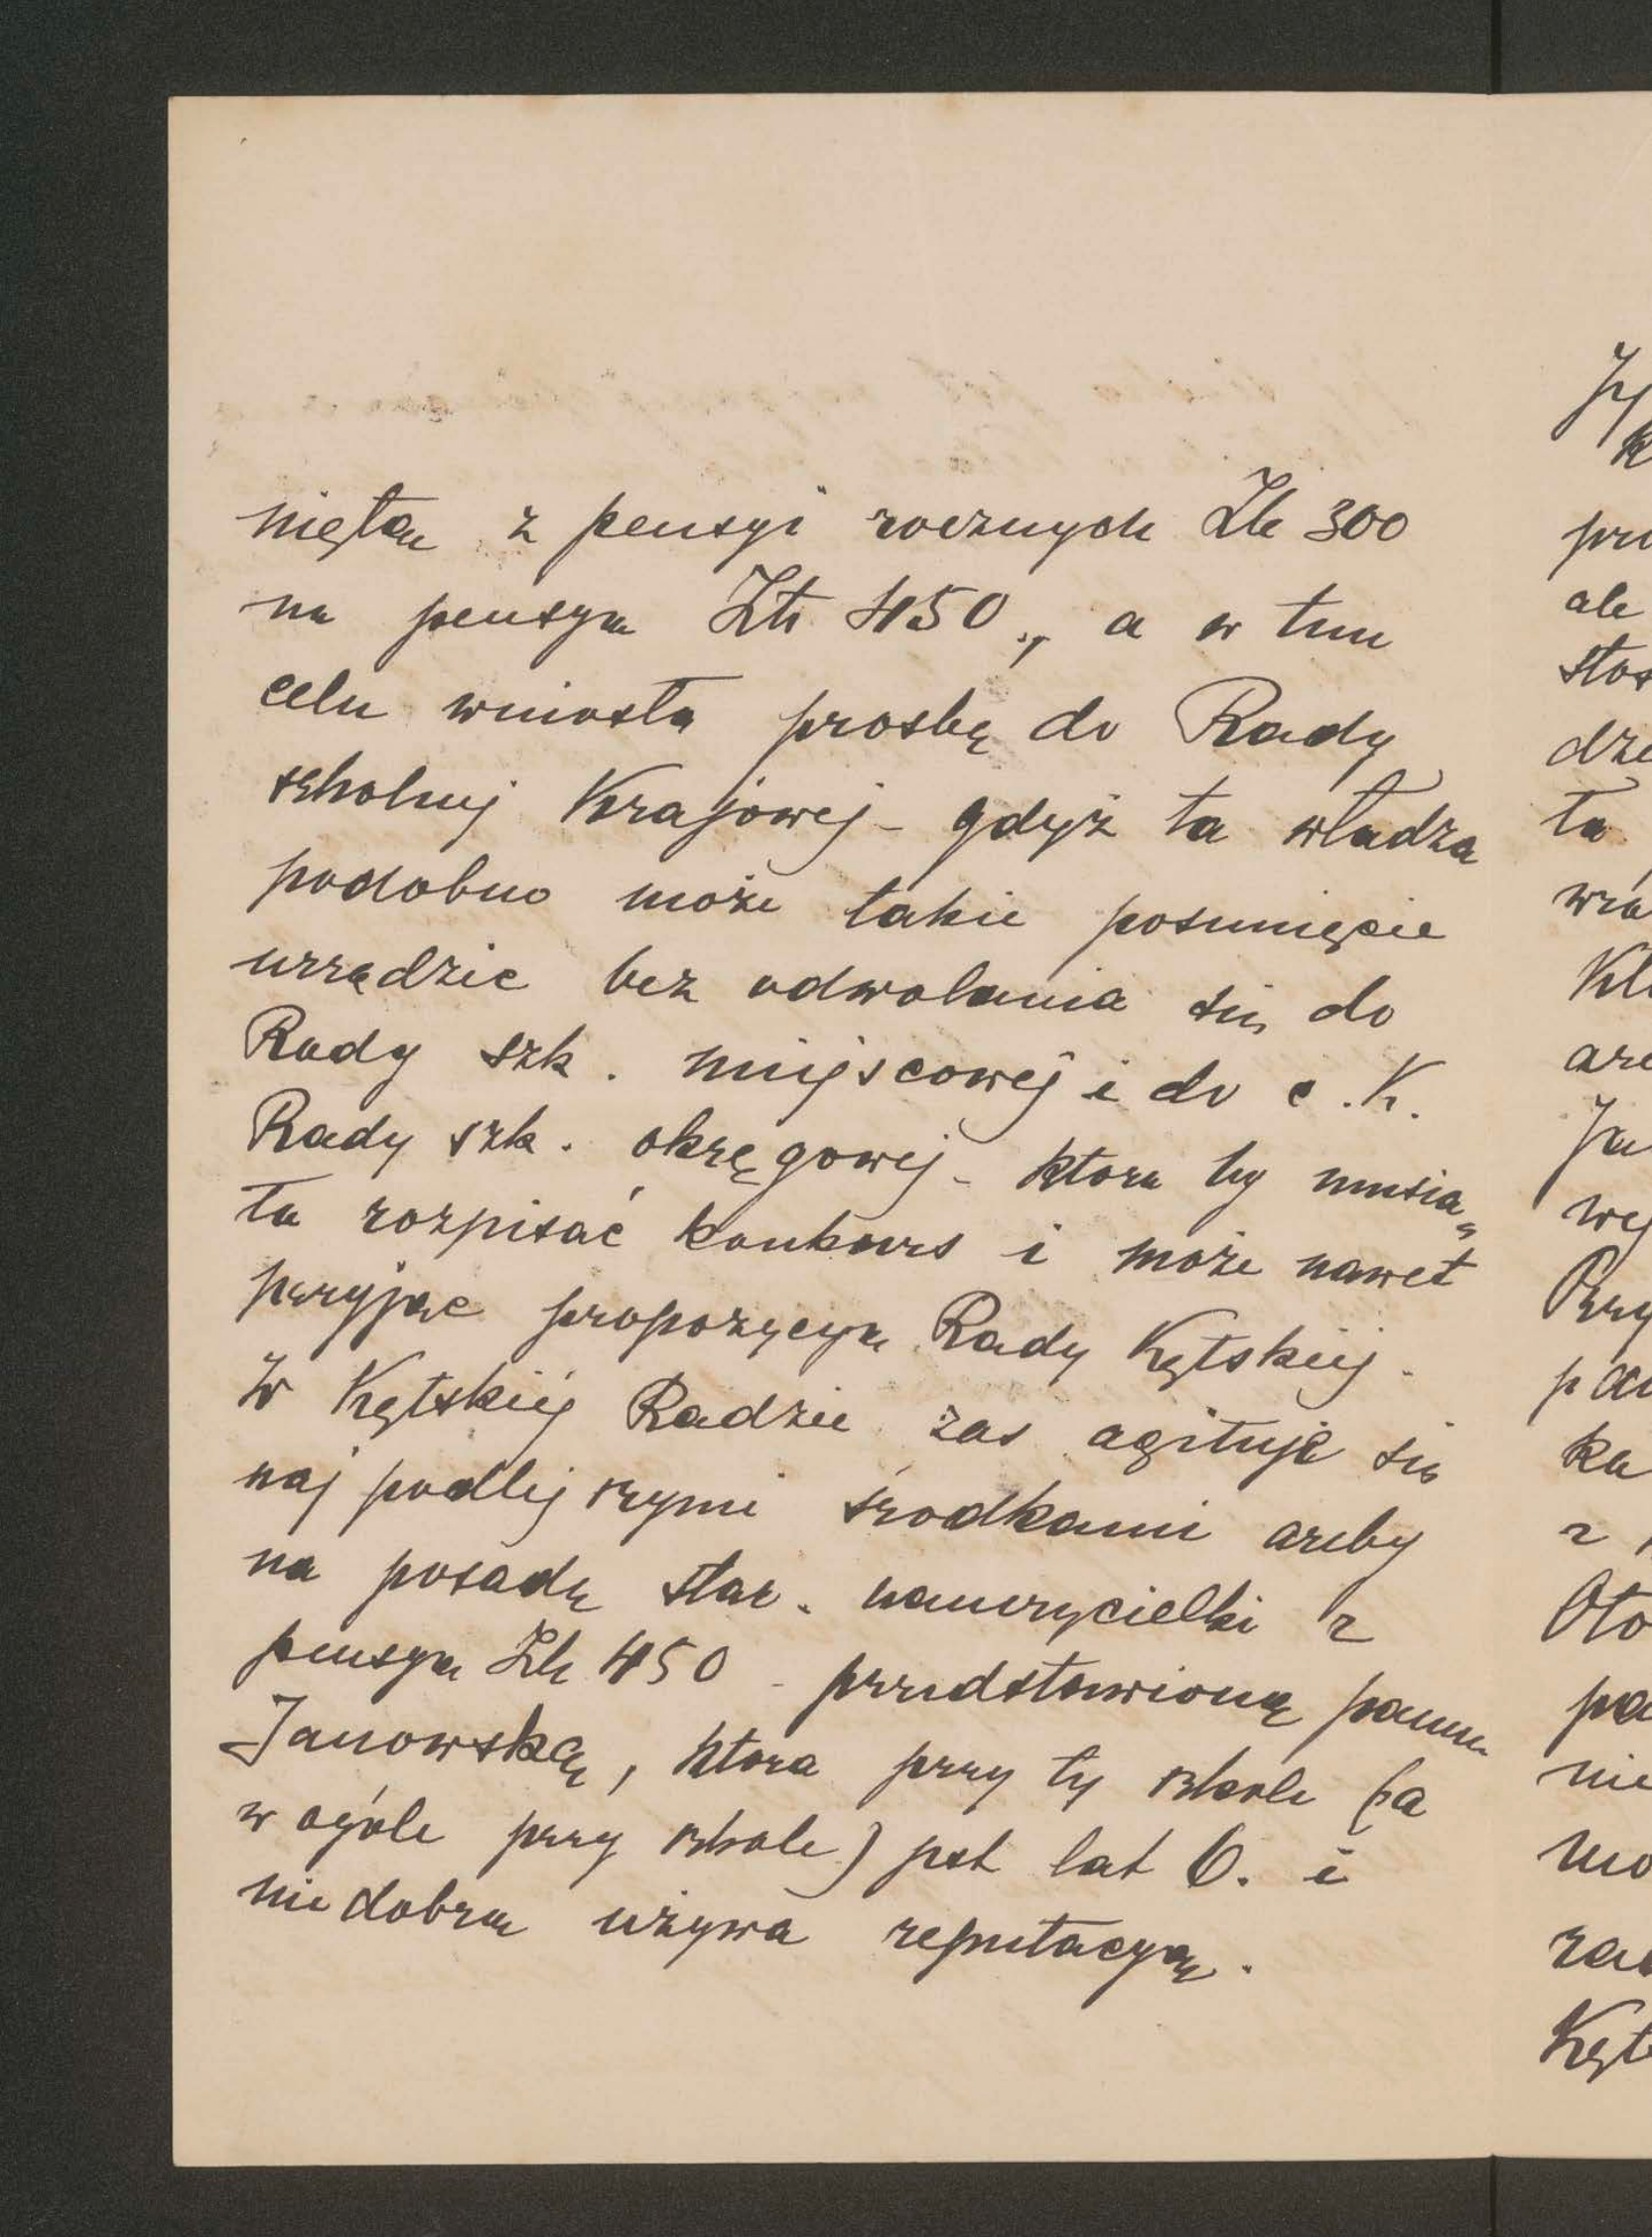 niętą z pensyi rocznych Złr 300
na pensyą Złr 450., a w tem
celu wniosła prosbę do Rady
szkolnej Krajowej - gdyż ta władza
podobno może takie posunięcie
urządzic bez odwolania się do
Rady szk. miejscowej i do c. K.
Rady szk. okręgowej - ktora by musia„
ła rozpisać konkurs i może nawet
przyjąc propozycyą Rady Kętskiéj.
W Kętskiéj Radzie zas agituje się
naj podlejszymi środkami ażeby
na posadę star. nauczycielki z
pensyą Złr 450 - przedstawioną pannę
Janowską, ktora przy tej szkole (a
w ogóle przy szkole) jest lat 6. i
nie dobrą używa reputacyą.
Jy
k
pro
ale
stos
dze
ta
Kl
Ja
wej
Przy
pa
ka
z
Oto
pa
nie
mo
Kęt